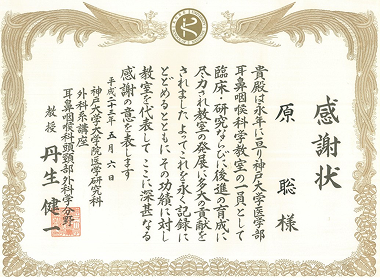 感謝状
原 聡 様
貴殿は永年に亘り神戸大学医学部
耳鼻咽喉科学教室の一員として
臨床・研究ならびに後進の育成に
尽力され教室の発展に多大の貢献を
されました よってこれを永く記録に
とどめるとともに その功績に対し
教室を代表して ここに深甚なる
感謝の意を表します
平成二十三年 五月 六日
神戸大学大学院医学研究科
外科系講座
耳鼻咽喉科頭頸部外科学分野
教授 丹生 健一